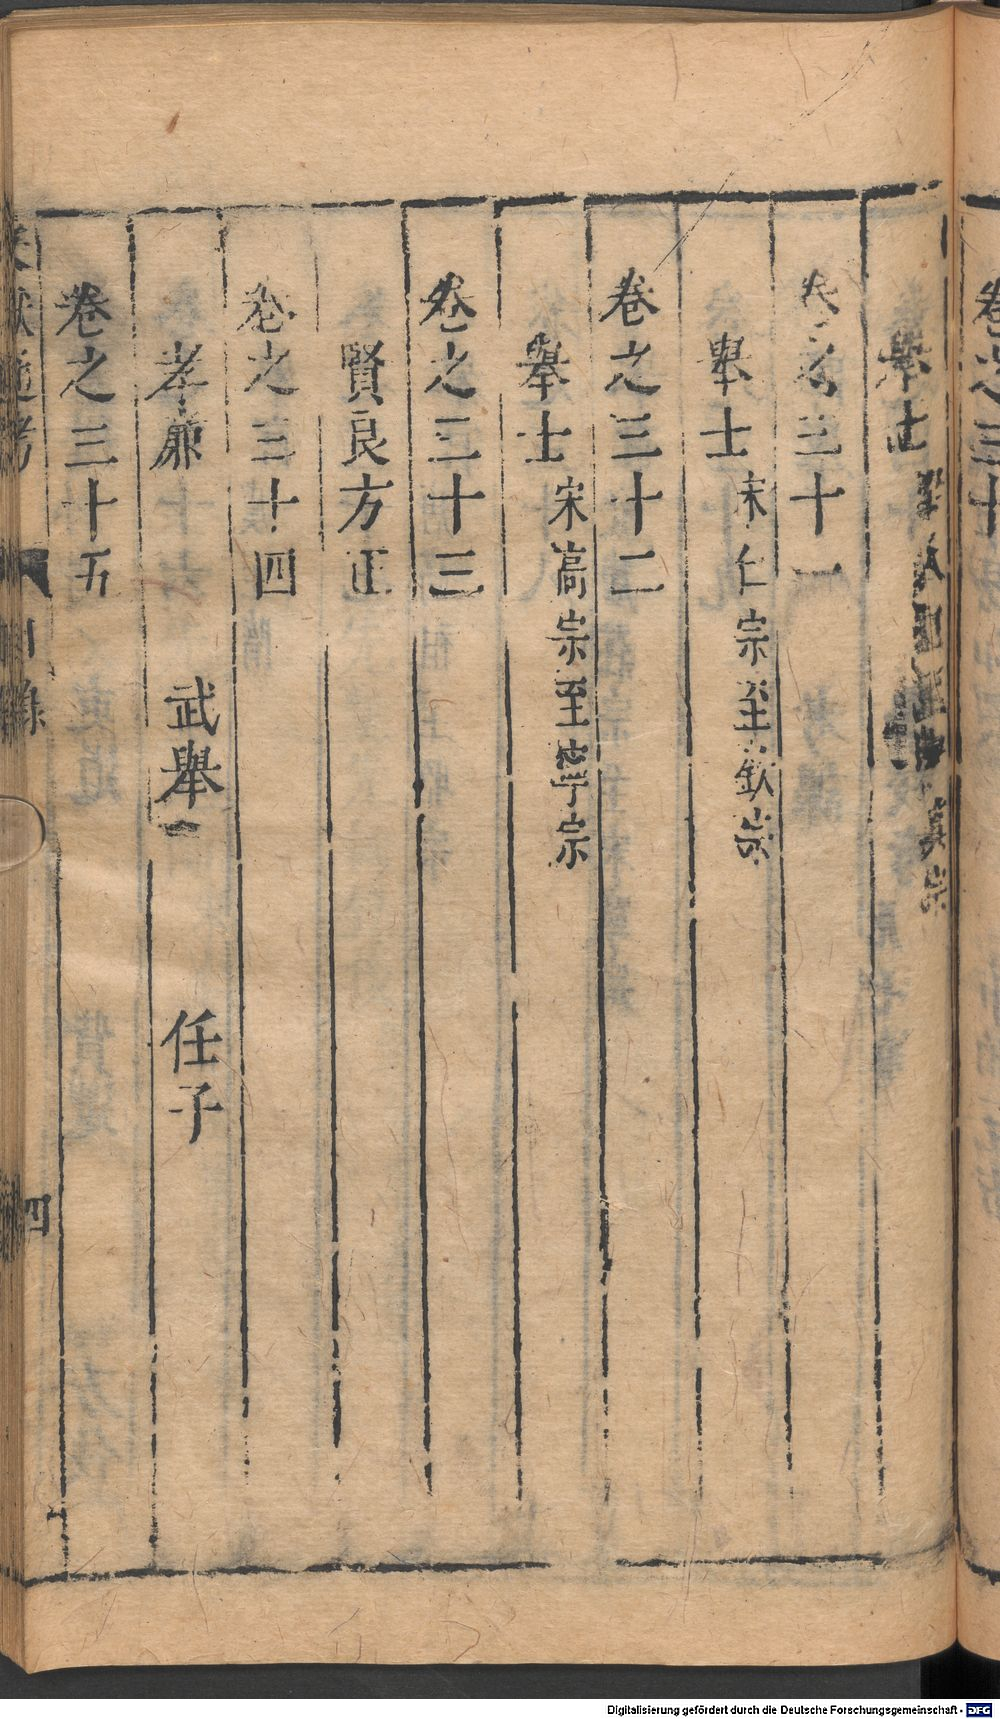 卷之三十
舉士 真宗
卷之三十一
舉士 宋仁宗至欽宗
卷之三十二
舉士 宋高宗至寧宗
卷之三十三
賢良方正
卷之三十四
孝廉 武舉 任子
卷之三十五
文獻通考 目錄 四
Digitalisierung gefördert durch die Deutsche Forschungsgemeinschaft - DFG